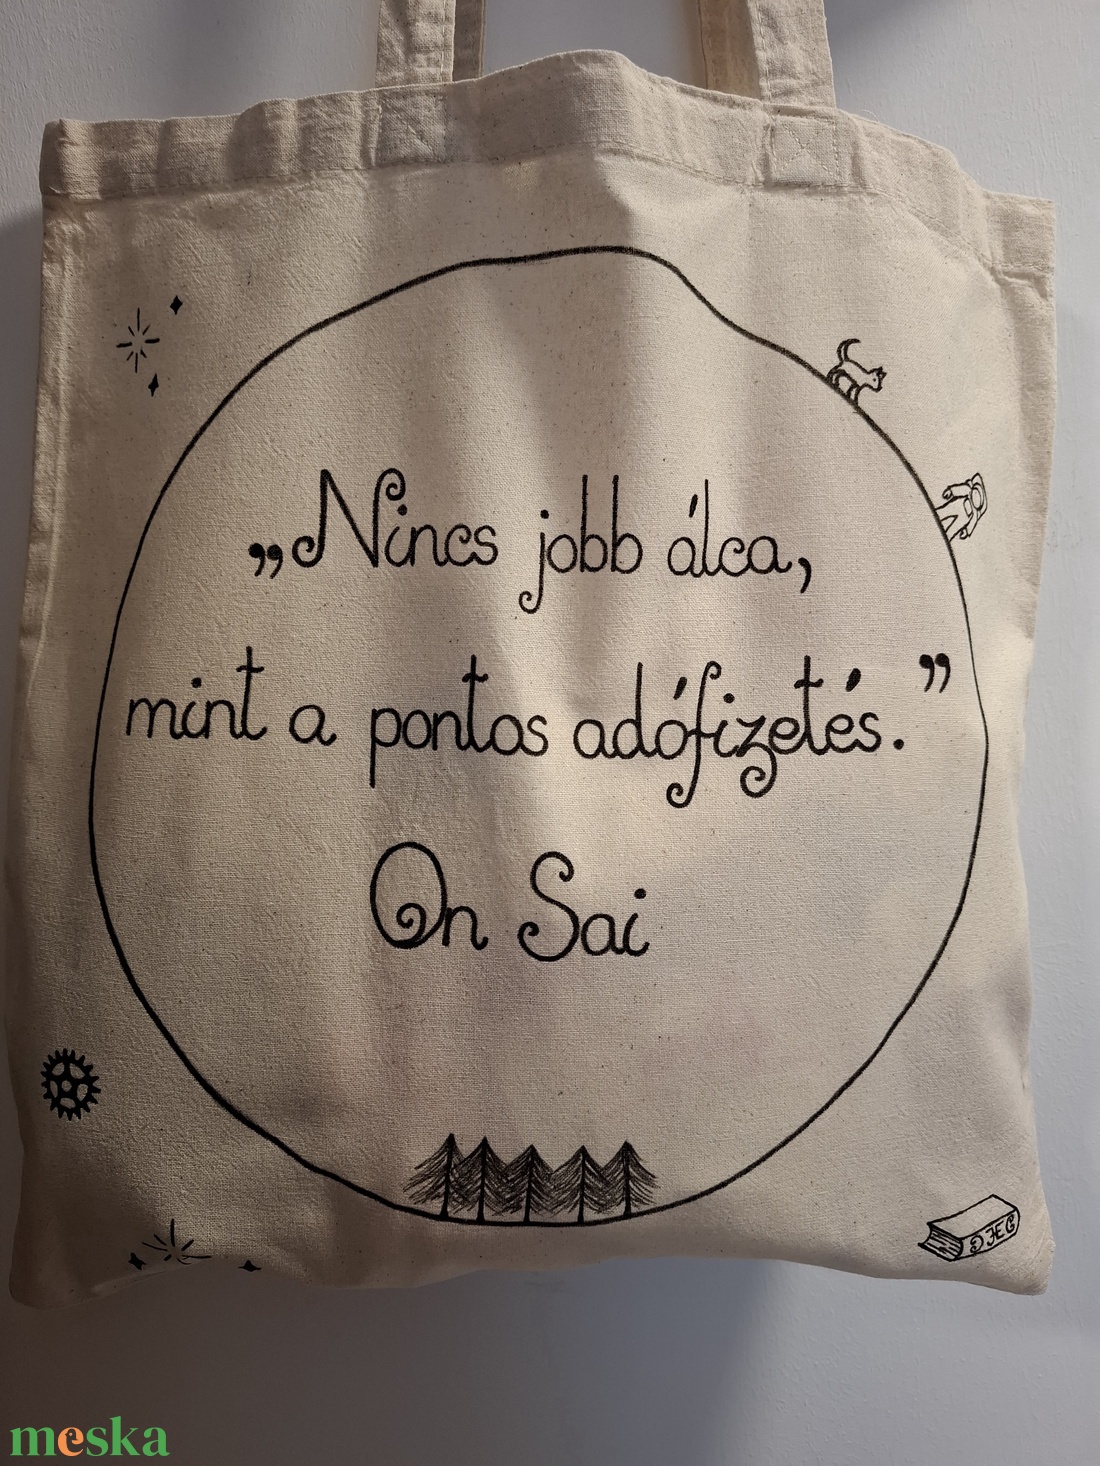 „Nincs jobb álca,
mint a pontos adófizetés.”
On Sai
meska